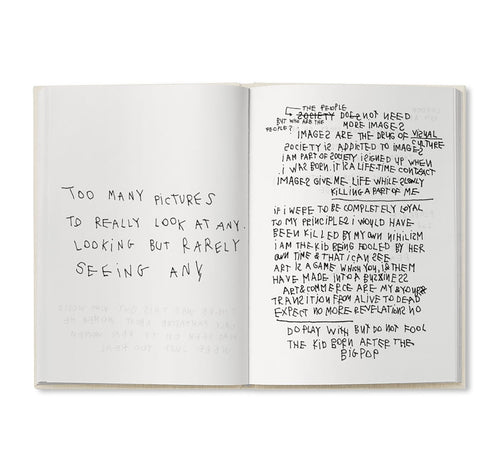 TOO MANY PICTURES
TO REALLY LOOK AT ANY.
LOOKING BUT RARELY
SEEING ANY
THE PEOPLE
SOCIETY DOES NOT NEED
BUT WHO ARE THE PEOPLE? MORE IMAGES
IMAGES ARE THE DRUG OF VISUAL CULTURE
SOCIETY IS ADDICTED TO IMAGES
I AM PART OF SOCIETY I SIGNED UP WHEN
I WAS BORN. IT IS A LIFE-TIME CONTRACT
IMAGES GIVE ME LIFE WHILE SLOWLY
KILLING A PART OF ME
IF I WERE TO BE COMPLETELY LOYAL
TO MY PRINCIPLES I WOULD HAVE
BEEN KILLED BY MY OWN NIHILISM
I AM THE KID BEING FOOLED BY HER
OWN TIME & THAT I CAN SEE
ART IS A GAME WHICH YOU, I & THEM
HAVE MADE INTO A BUZINESS
ART & COMMERCE ARE MY & YOURS
TRANSITION FROM ALIVE TO DEAD
EXPECT NO MORE REVELATIONS NO
DO PLAY WITH BUT DO NOT FOOL
THE KID BORN AFTER THE
BIG POP